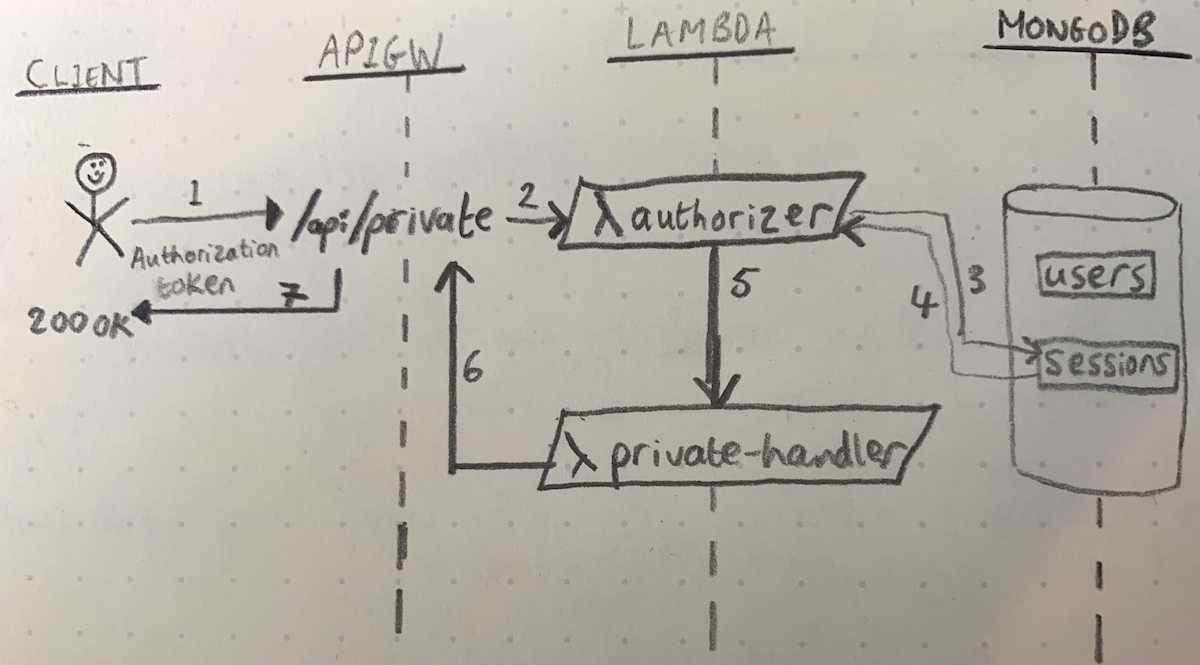 CLIENT
APIGW
LAMBDA
MONGODB
1
/api/private
2
λ authorizer
Authorization
token
7
200 OK
6
5
4
3
users
sessions
λ private-handler